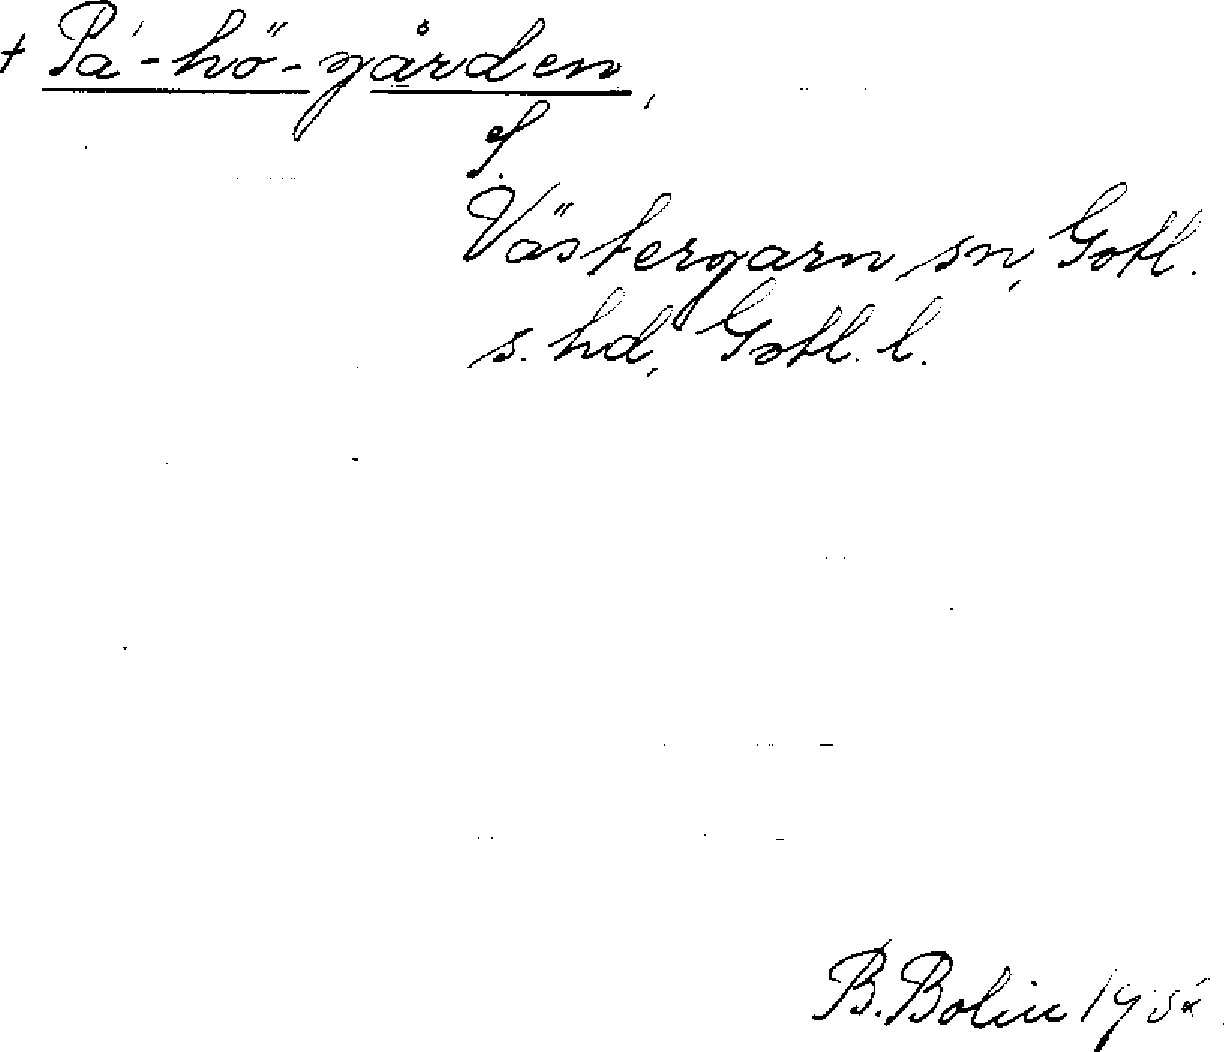 + Pá-hö-gården,
f.
Västergarn sn, Gotl.
s. hd, Gotl. l.
B. Bolin